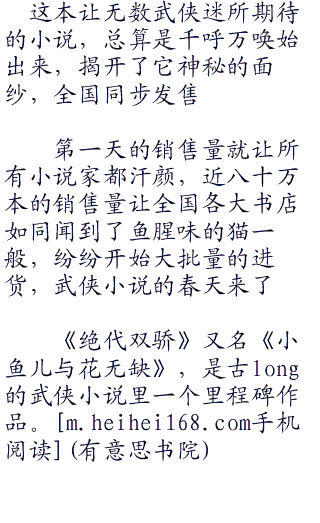 这本让无数武侠迷所期待
的小说，总算是千呼万唤始
出来，揭开了它神秘的面
纱，全国同步发售
第一天的销售量就让所
有小说家都汗颜，近八十万
本的销售量让全国各大书店
如同闻到了鱼腥味的猫一
般，纷纷开始大批量的进
货，武侠小说的春天来了
《绝代双骄》又名《小
鱼儿与花无缺》，是古long
的武侠小说里一个里程碑作
品。[m.heihei168.com手机
阅读](有意思书院)